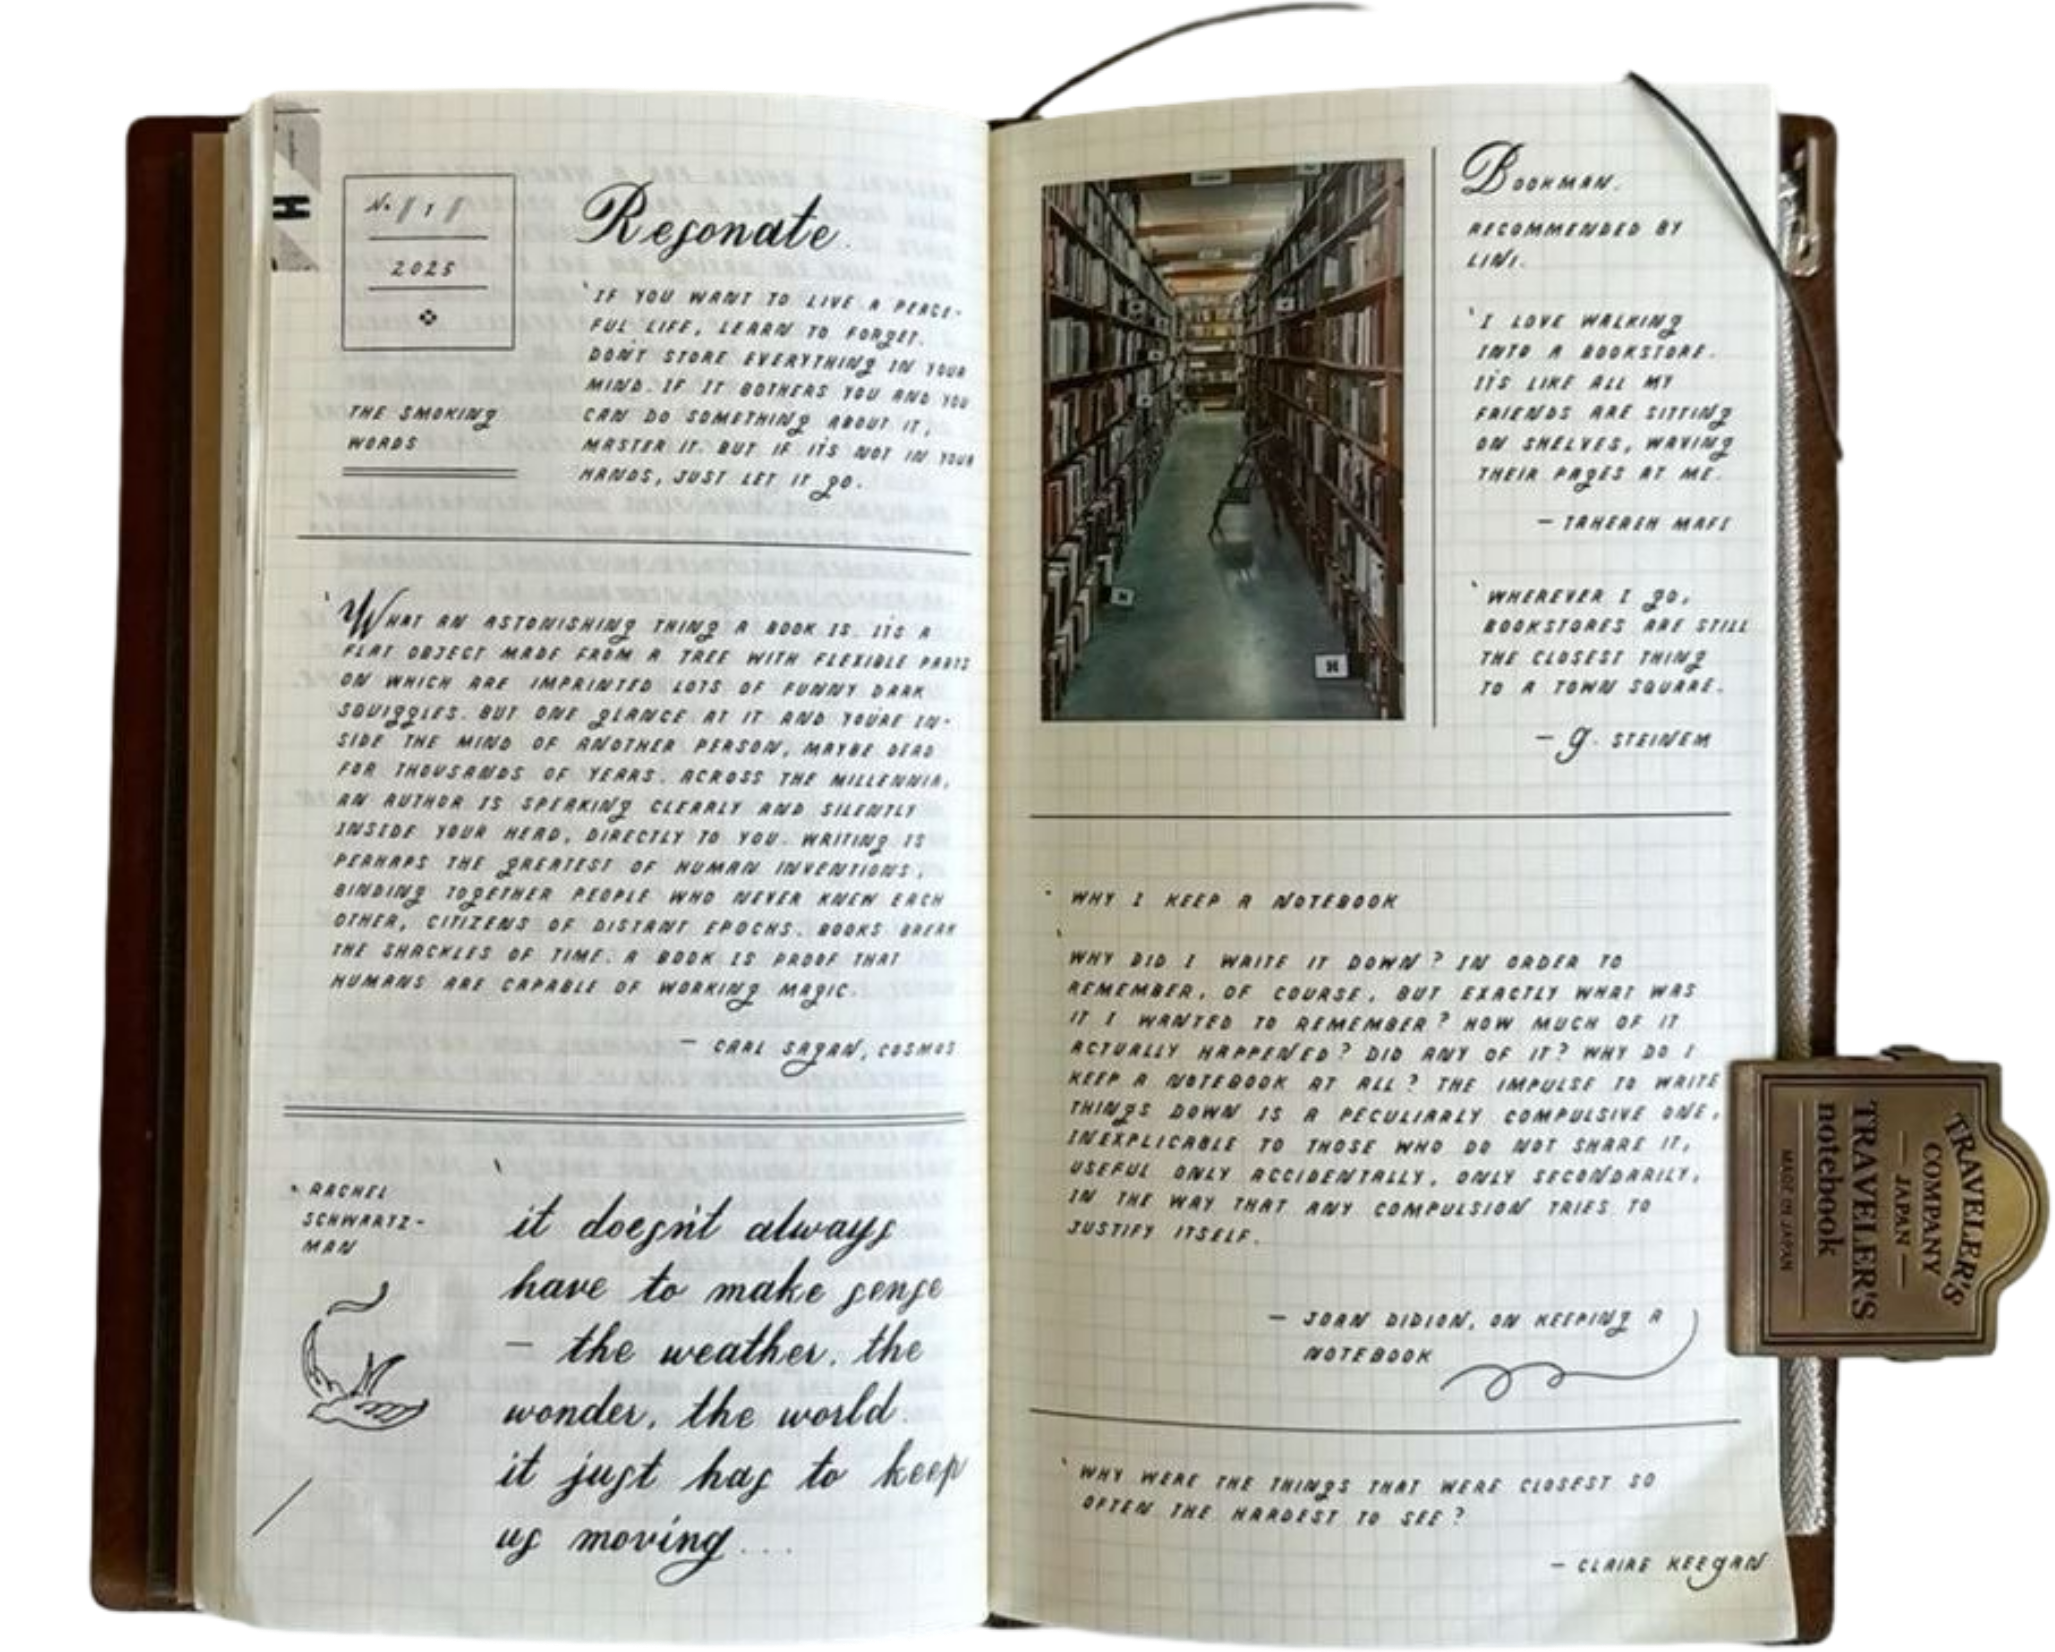 No. / 1 /
2025
THE SMOKING
WORDS
Resonate.
'IF YOU WANT TO LIVE A PEACE-
FUL LIFE, LEARN TO FORGET.
DON'T STORE EVERYTHING IN YOUR
MIND. IF IT BOTHERS YOU AND YOU
CAN DO SOMETHING ABOUT IT,
MASTER IT. BUT IF IT'S NOT IN YOUR
HANDS, JUST LET IT GO.
'WHAT AN ASTONISHING THING A BOOK IS. IT'S A
FLAT OBJECT MADE FROM A TREE WITH FLEXIBLE PARTS
ON WHICH ARE IMPRINTED LOTS OF FUNNY DARK
SQUIGGLES. BUT ONE GLANCE AT IT AND YOU'RE IN-
SIDE THE MIND OF ANOTHER PERSON, MAYBE DEAD
FOR THOUSANDS OF YEARS. ACROSS THE MILLENNIA,
AN AUTHOR IS SPEAKING CLEARLY AND SILENTLY
INSIDE YOUR HEAD, DIRECTLY TO YOU. WRITING IS
PERHAPS THE GREATEST OF HUMAN INVENTIONS,
BINDING TOGETHER PEOPLE WHO NEVER KNEW EACH
OTHER, CITIZENS OF DISTANT EPOCHS. BOOKS BREAK
THE SHACKLES OF TIME. A BOOK IS PROOF THAT
HUMANS ARE CAPABLE OF WORKING MAGIC.
— CARL SAGAN, COSMOS
RACHEL
SCHWARTZ-
MAN
'it doesn't always
have to make sense
— the weather, the
wonder, the world.
it just has to keep
us moving....
BOOKMAN.
RECOMMENDED BY
LINI.
'I LOVE WALKING
INTO A BOOKSTORE.
IT'S LIKE ALL MY
FRIENDS ARE SITTING
ON SHELVES, WAVING
THEIR PAGES AT ME.
— TAHEREH MAFI
'WHEREVER I GO,
BOOKSTORES ARE STILL
THE CLOSEST THING
TO A TOWN SQUARE.
— G. STEINEM
H
H
WHY I KEEP A NOTEBOOK
'WHY DID I WRITE IT DOWN? IN ORDER TO
REMEMBER, OF COURSE, BUT EXACTLY WHAT WAS
IT I WANTED TO REMEMBER? HOW MUCH OF IT
ACTUALLY HAPPENED? DID ANY OF IT? WHY DO I
KEEP A NOTEBOOK AT ALL? THE IMPULSE TO WRITE
THINGS DOWN IS A PECULIARLY COMPULSIVE ONE,
INEXPLICABLE TO THOSE WHO DO NOT SHARE IT,
USEFUL ONLY ACCIDENTALLY, ONLY SECONDARILY,
IN THE WAY THAT ANY COMPULSION TRIES TO
JUSTIFY ITSELF.
— JOAN DIDION, ON KEEPING A
NOTEBOOK
'WHY WERE THE THINGS THAT WERE CLOSEST SO
OFTEN THE HARDEST TO SEE?
— CLAIRE KEEGAN
TRAVELER'S
COMPANY
— JAPAN —
TRAVELER'S
notebook
MADE IN JAPAN